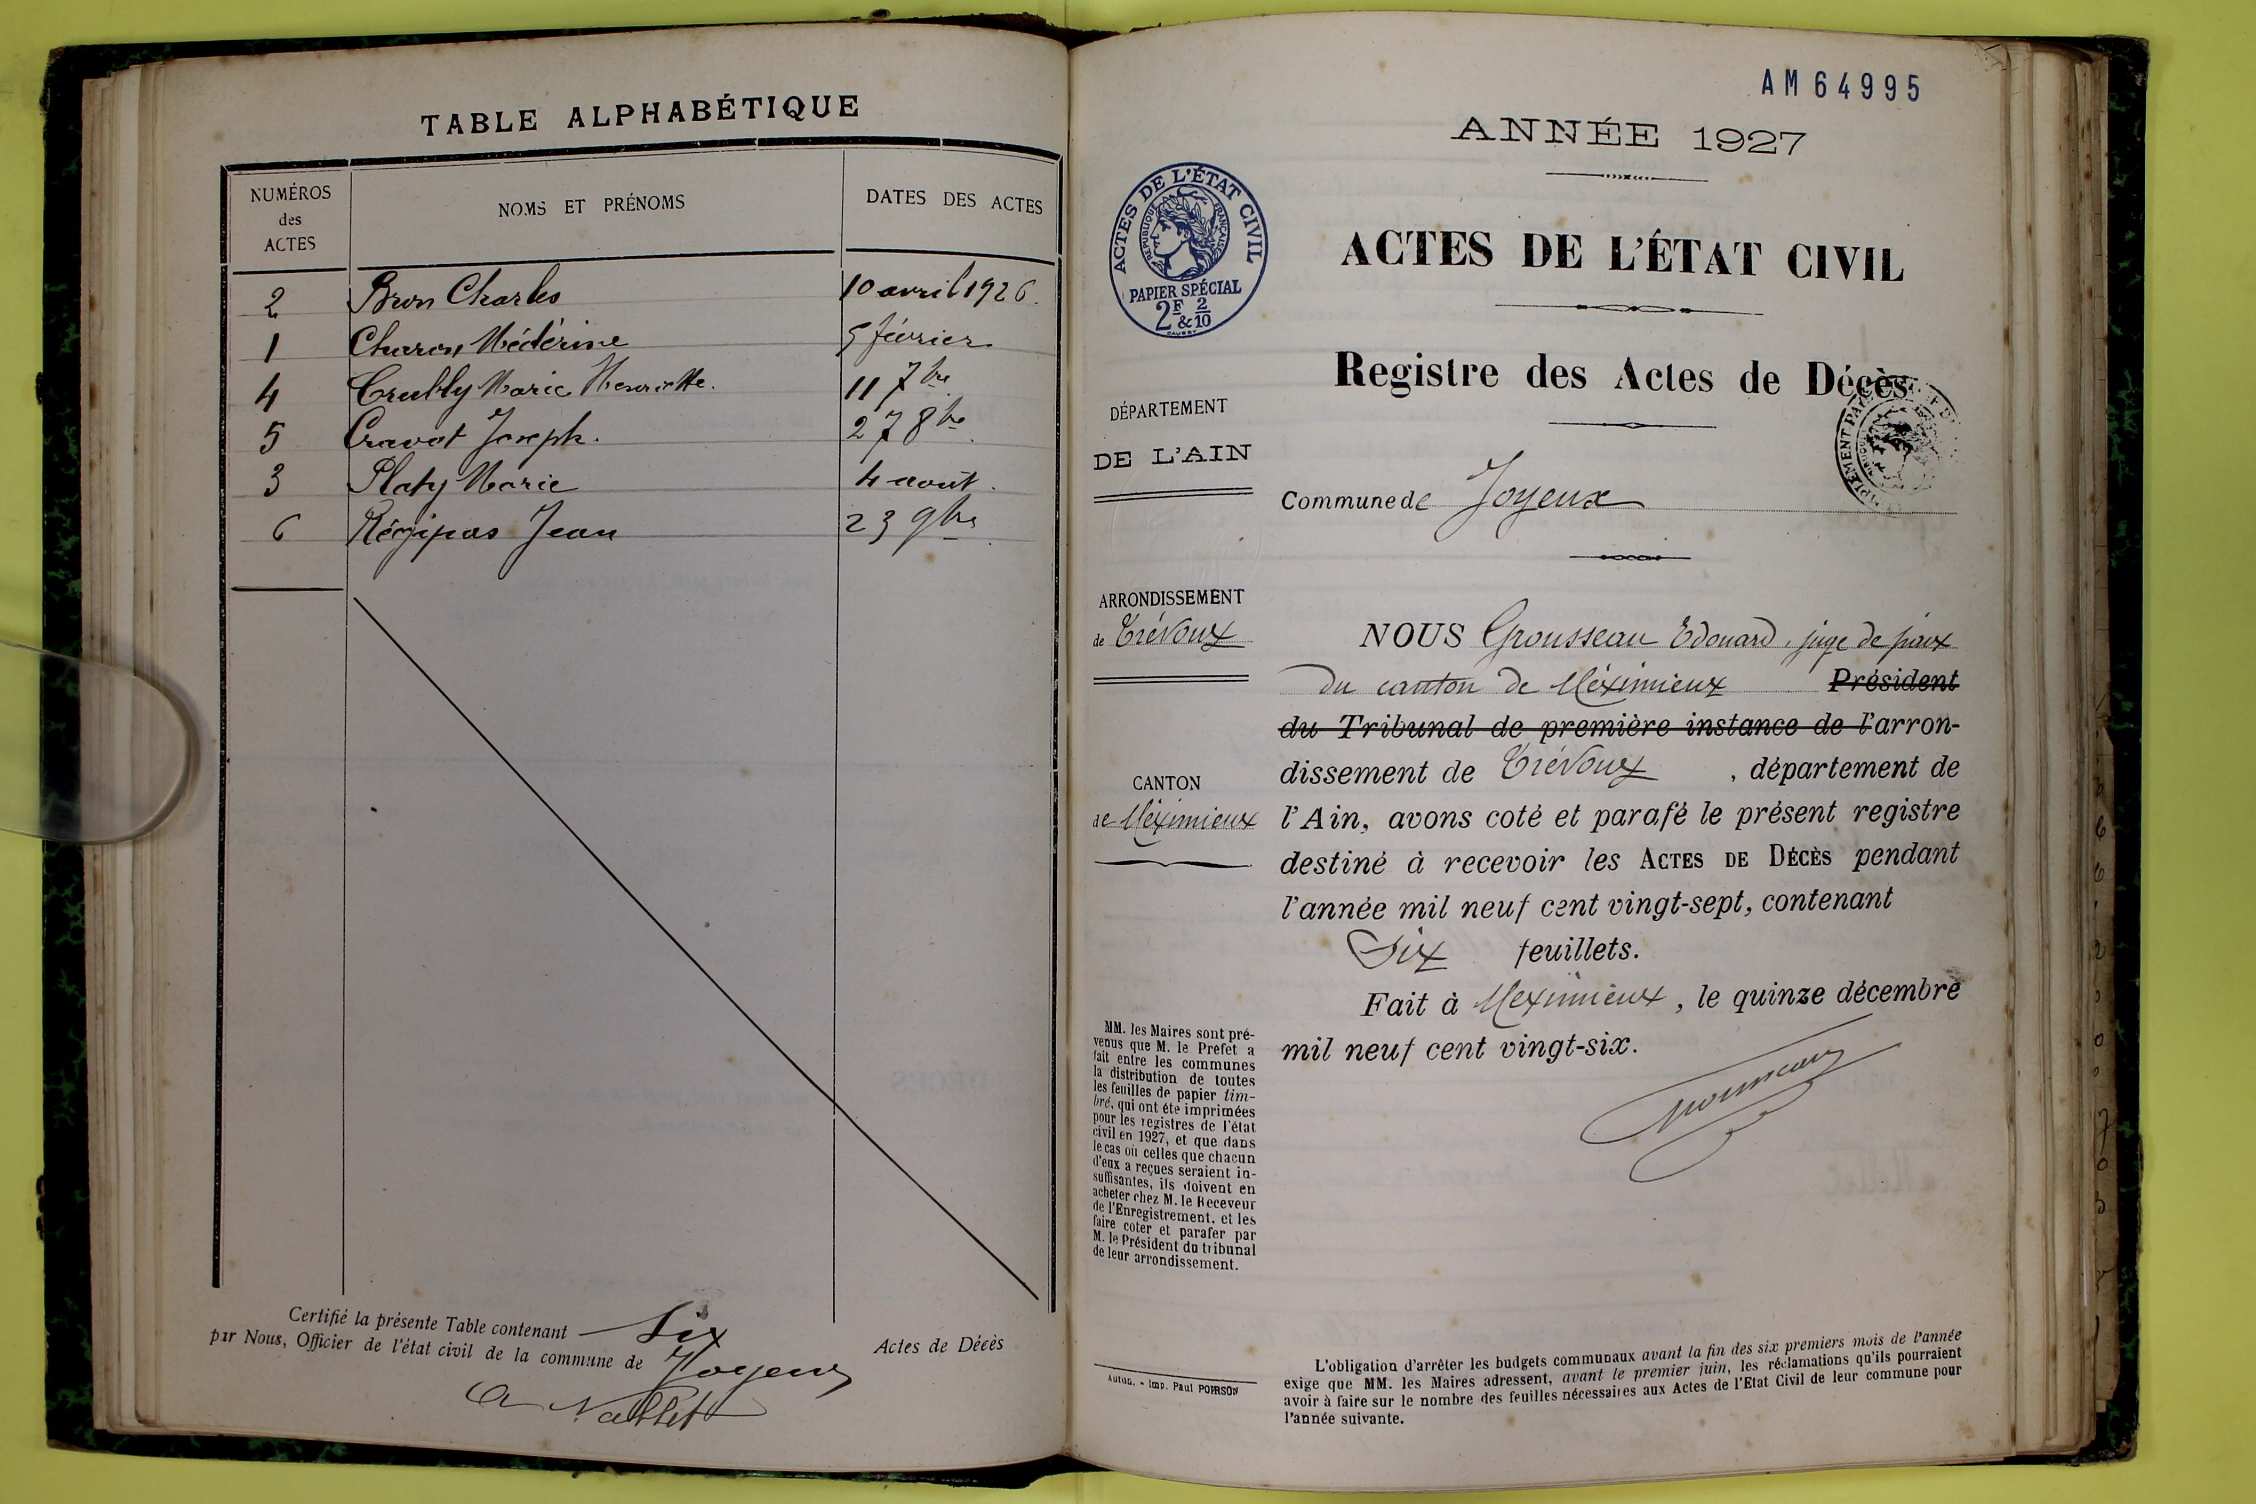 TABLE ALPHABÉTIQUE
NUMÉROS des ACTES
NOMS ET PRÉNOMS
DATES DES ACTES
2 Bron Charles 10 avril 1926.
1 Charon Médérine 5 février
4 Marie Henriette. 11 7bre
5 Cravat Joseph. 27 8bre
3 Platy Marie 4 août.
6 Régipas Jean 23 9bre
Certifié la présente Table contenant Six Actes de Décès
par Nous, Officier de l'état civil de la commune de Joyeux
AM64995
ANNÉE 1927
ACTES DE L'ÉTAT CIVIL
RÉPUBLIQUE FRANÇAISE
PAPIER SPÉCIAL
2F & 2/10
ACTES DE L'ÉTAT CIVIL
Registre des Actes de Décès
DÉPARTEMENT
DE L'AIN
Commune de Joyeux
ARRONDISSEMENT
de Trévoux
CANTON
de Méximieux
NOUS Grousseau Edouard, juge de paix
du canton de Méximieux Président
du Tribunal de première instance de l'arron-
dissement de Trévoux, département de
l'Ain, avons coté et parafé le présent registre
destiné à recevoir les ACTES DE DÉCÈS pendant
l'année mil neuf cent vingt-sept, contenant
Six feuillets.
Fait à Meximieux, le quinze décembre
mil neuf cent vingt-six.
MM. les Maires sont pré-
venus que M. le Préfet a
fait entre les communes
la distribution de toutes
les feuilles de papier tim-
bré, qui ont été imprimées
pour les registres de l'état
civil en 1927, et que dans
le cas où celles que chacun
d'eux a reçues seraient in-
suffisantes, ils doivent en
acheter chez M. le Receveur
de l'Enregistrement, et les
faire coter et parafer par
M. le Président du tribunal
de leur arrondissement.
Autun. - Imp. Paul POIRSON
L'obligation d'arrêter les budgets communaux avant la fin des six premiers mois de l'année
exige que MM. les Maires adressent, avant le premier juin, les réclamations qu'ils pourraient
avoir à faire sur le nombre des feuilles nécessaires aux Actes de l'Etat Civil de leur commune pour
l'année suivante.